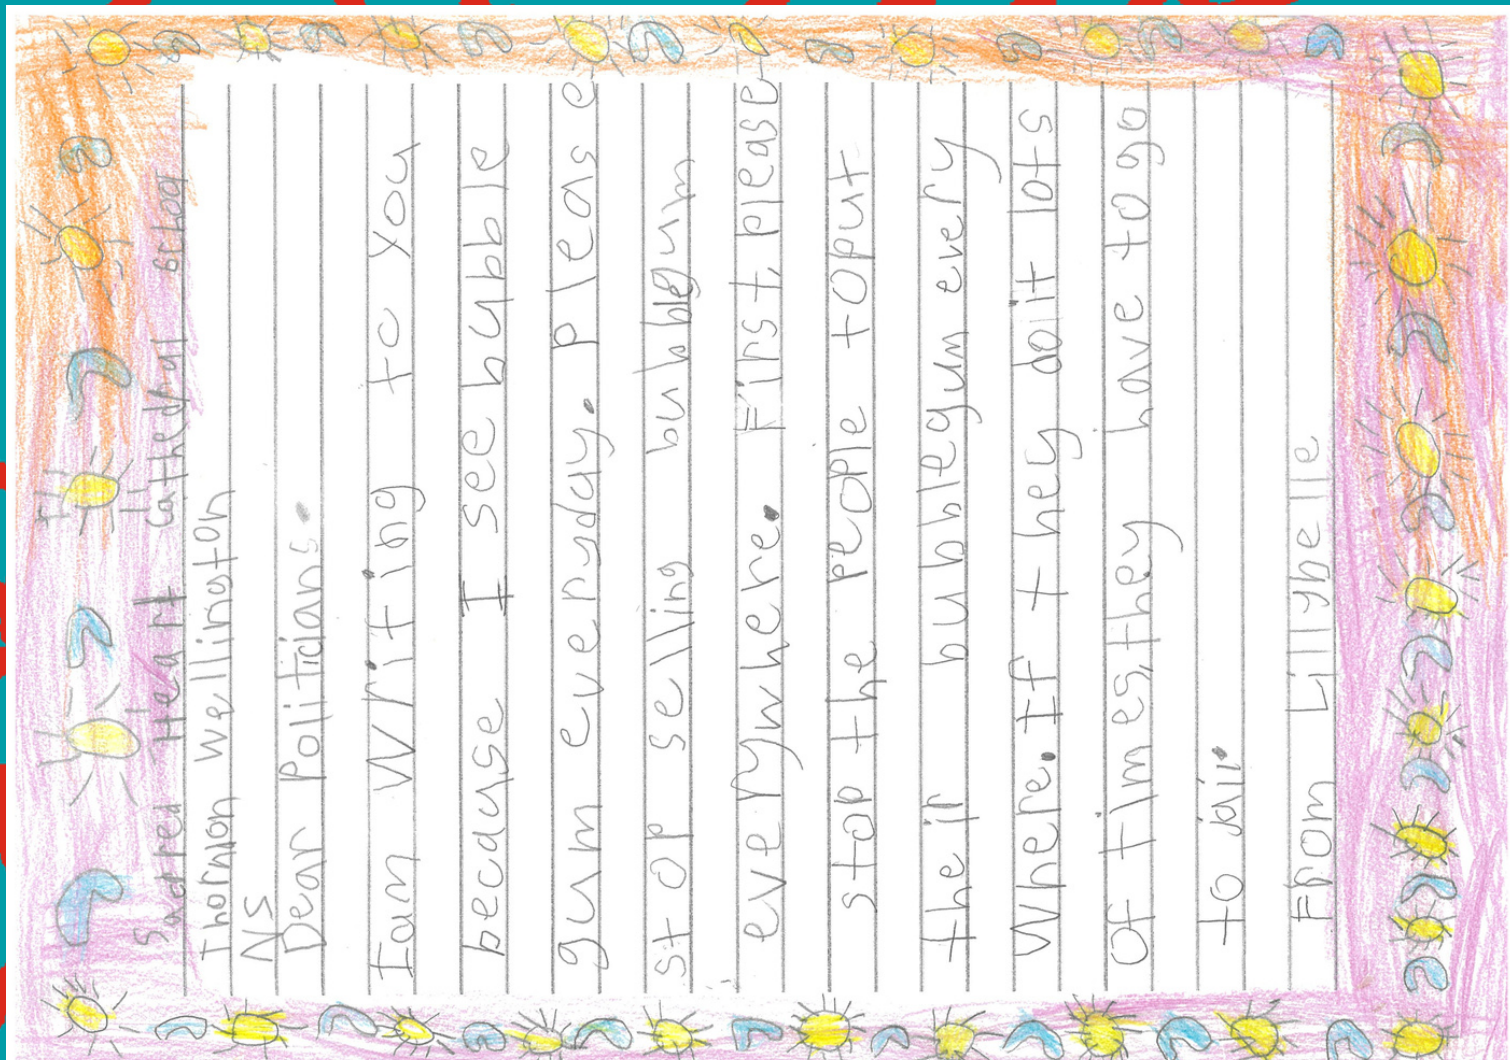 Sacred Heart Cathedral School
Thorndon Wellington
NS
Dear Politicians.
I am writing to you
because I see bubble
gum everyday. please
stop selling bubblegum
everywhere. First, please
stop the people toput
their bubblegum every
where. If they do it lots
of times, they have to go
to jail.
From Lillybelle